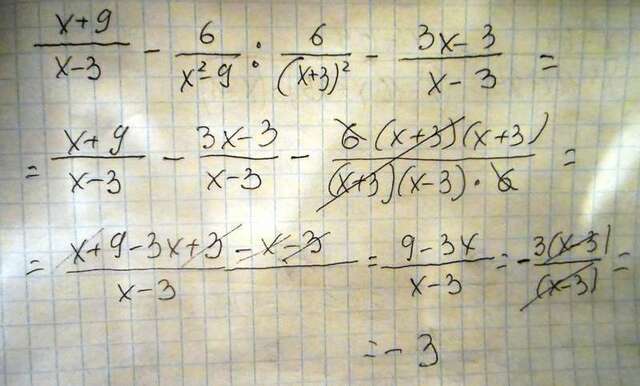 (x+9)/(x-3) - 6/(x²-9) : 6/(x+3)² - (3x-3)/(x-3) =
= (x+9)/(x-3) - (3x-3)/(x-3) - (6(x+3)(x+3))/((x+3)(x-3)·6) =
= (x+9-3x+3-x-3)/(x-3) = (9-3x)/(x-3) = -(3(x-3))/((x-3)) =
= -3